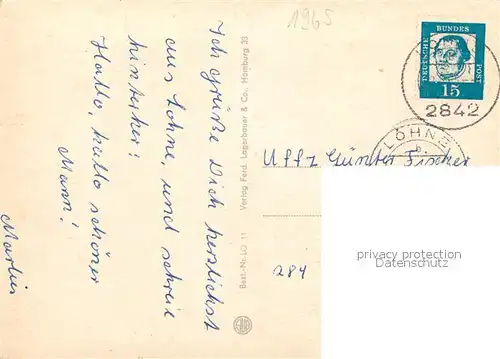 1965
DEUTSCHE
BUNDES
POST
15
2842
LOHNE
b
Uffz Günter Fischer
284
privacy protection
Datenschutz
Ich grüße Dich herzlichst
aus Lohne, und schreie
hinterher:
Hallo, hallo schöner
Mann!
Marlies
Verlag Ferd. Lagerbauer & Co., Hamburg 33
Best.-Nr. LO 11